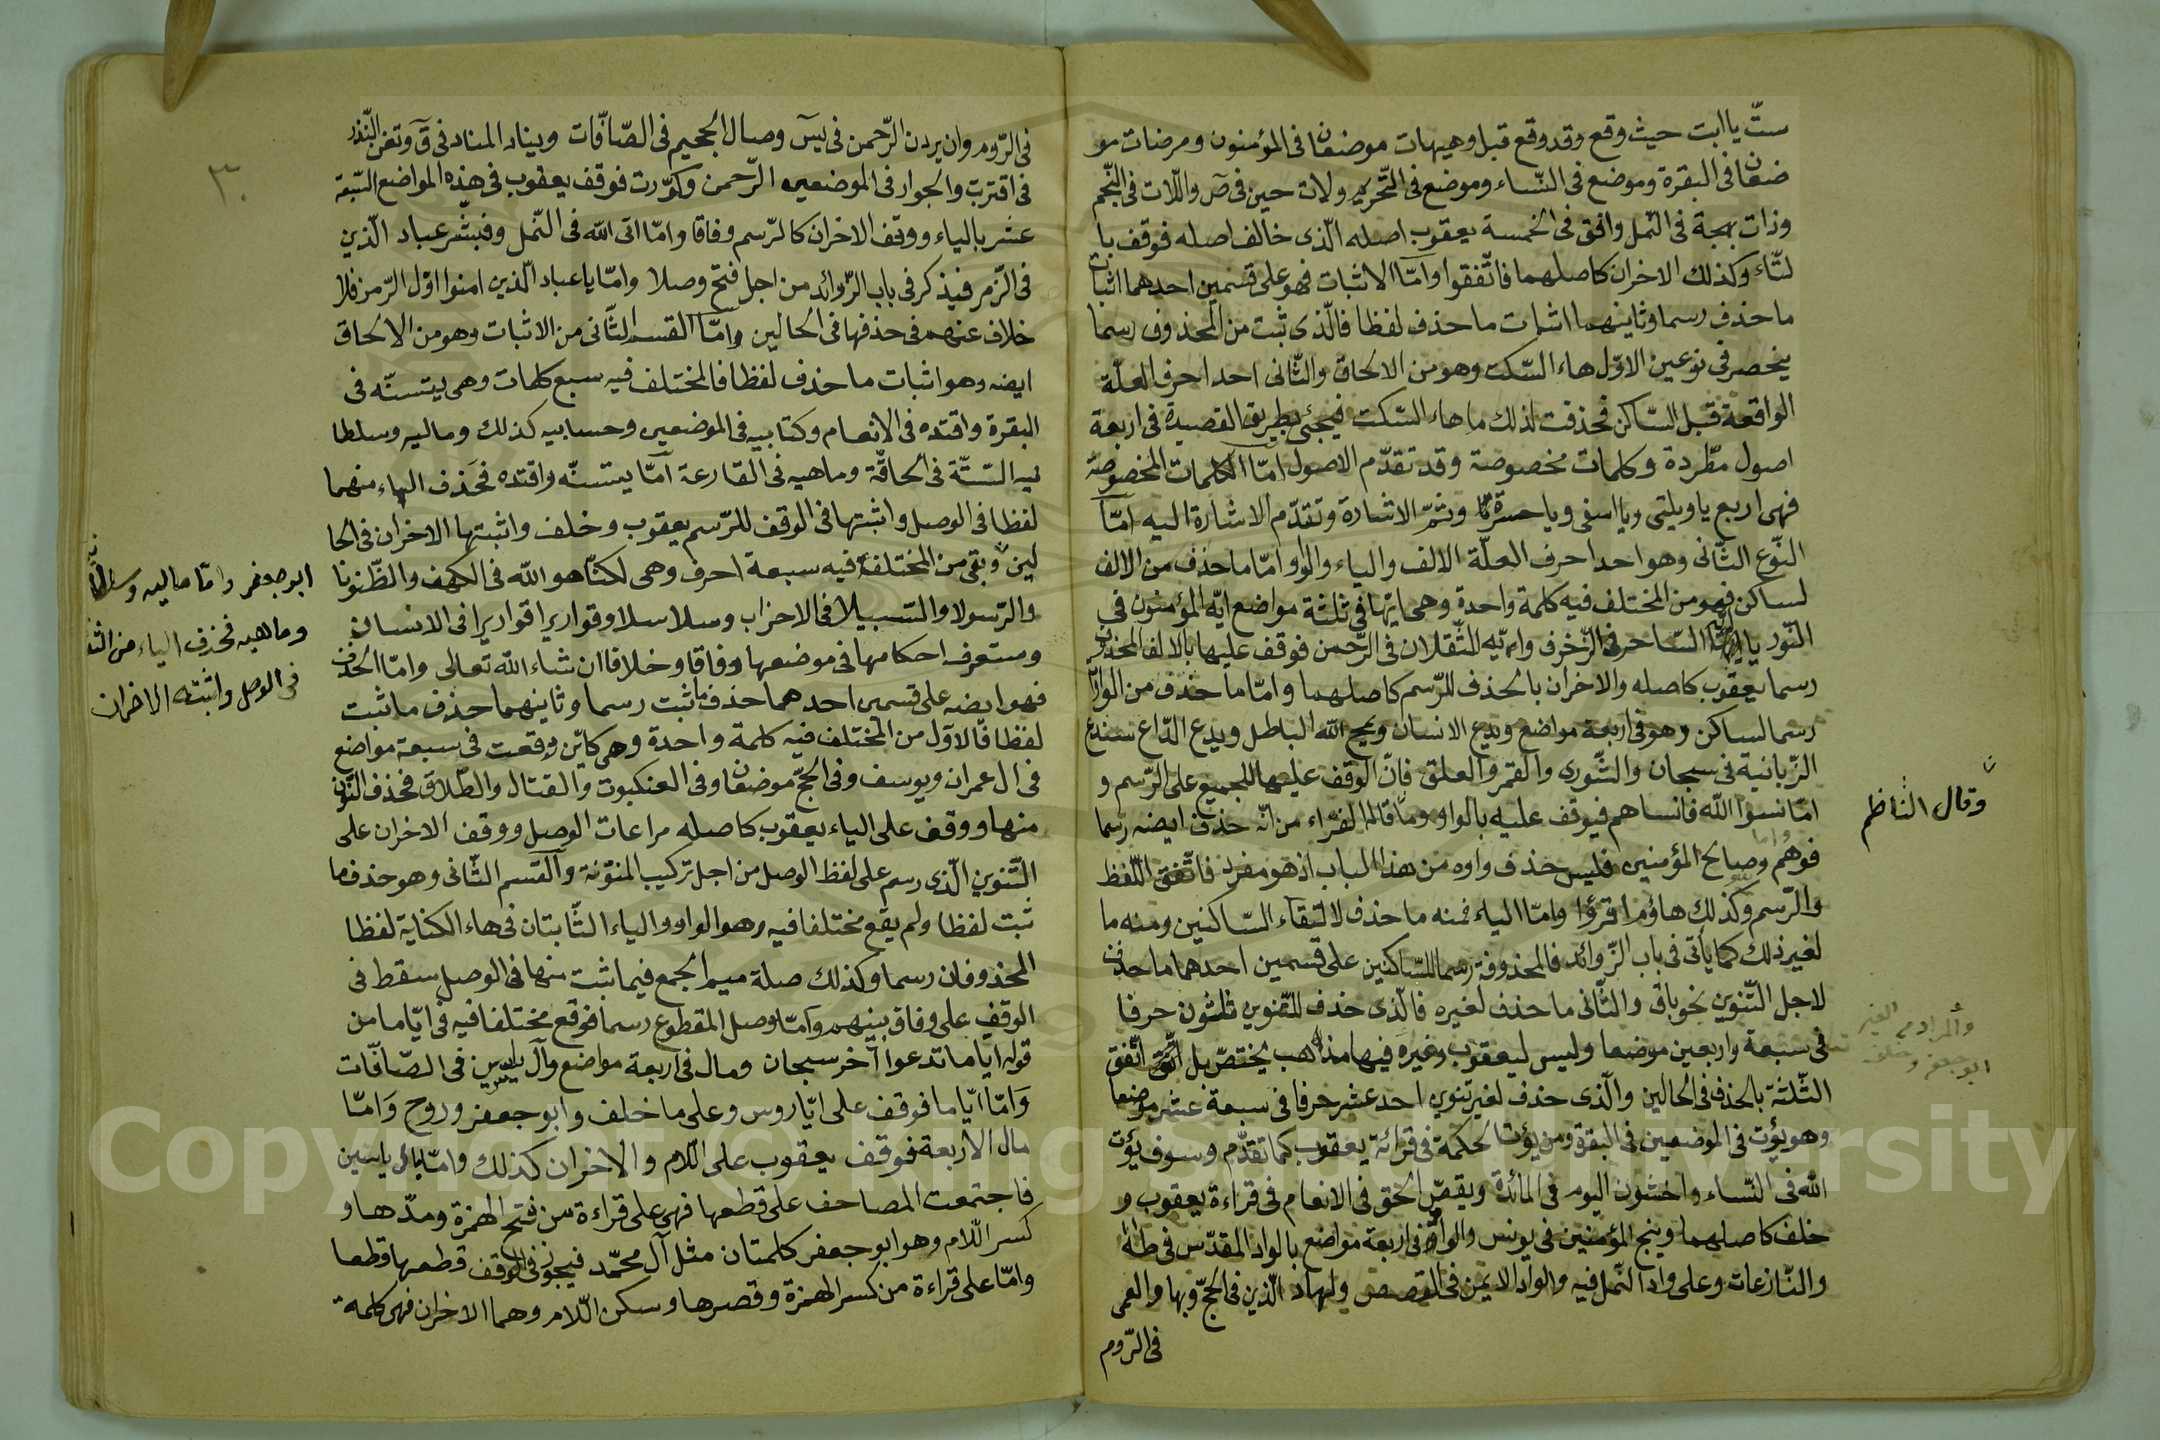 ستّ يا ابت حيث وقع وقد وقع قبل وهيهات موضعان فى المؤمنون ومرضات مو
ضعان فى البقرة وموضع فى النّساء وموضع فى التّحريم ولات حين فى صۤ واللّات فى النّجم
وذات بهجة فى النّمل وافق فى الخمسة يعقوب اصله الّذى خالف اصله فوقف با
لتّاء وكذلك الاخران كاصلهما فاتّفقوا وامّا الاثبات فهو على قسمين احدهما اثبات
ما حذف رسما وثانيهما اثبات ما حذف لفظا فالّذى ثبت من المحذوف رسما
ينحصر فى نوعين الاوّل هاء السّكت وهو من الالحاق والثّانى احد احرف العلّة
الواقعة قبل السّاكن فحذفت لذلك ما هاء السّكت فيجئ بطريق القصيدة فى اربعة
اصول مطّردة وكلمات مخصوصة وقد تقدّم الاصول امّا الكلمات المخصوصة
فهى اربع يا ويلتى ويا اسفى ويا حسرتى وثمّ الاشارة وتقدّم الاشارة اليه امّا
النّوع الثّانى وهو احد احرف العلّة الالف والياء والواو امّا ما حذف من الالف
لساكن فهو من المختلف فيه كلمة واحدة وهى ايّها فى ثلثة مواضع ايّه المؤمنون فى
النّور يا ايّه السّاحر فى الزّخرف وايّه الثّقلان فى الرّحمن فوقف عليها بالالف المحذوف
رسما يعقوب كاصله والاخران بالحذف للرّسم كاصلهما وامّا ما حذف من الواو
رسما لساكن وهو فى اربعة مواضع ويدع الانسان ويمح الله الباطل ويدع الدّاع سندع
الزّبانية فى سبحان والشّورى والقمر والعلق فانّ الوقف عليها للجميع على الرّسم و
امّا نسوا الله فانساهم فيوقف عليه بالواو وما قاله الفرّاء من انّه حذف ايضه رسما
فوهم واما وصالح المؤمنين فليس حذف واوه من هذا الباب اذ هو مفرد فاتّفق اللّفظ
والرّسم وكذلك هاؤم اقرؤا وامّا الياء فمنه ما حذف لالتقاء السّاكنين ومنه ما
لغير ذلك كما يأتى فى باب الزّوائد فالمحذوفة رسما للسّاكنين على قسمين احدهما ما حذف
لاجل التّنوين نحو باق والثّانى ما حذف لغيره فالّذى حذف للتّنوين ثلثون حرفا
فى سبعة واربعين موضعا وليس ليعقوب وغيره فيها مذاهب يختصّ بل اتّفق
الثّلثة بالحذف فى الحالين والّذى حذف لغير تنوين احد عشر حرفا فى سبعة عشر موضعا
وهو يؤت فى الموضعين فى البقرة ومن يؤت الحكمة فى قرائة يعقوب كما تقدّم وسوف يؤت
الله فى النّساء واخشون اليوم فى المائدة ويقضّ الحق فى الانعام فى قراءة يعقوب و
خلف كاصلهما وينج المؤمنين فى يونس والواد فى اربعة مواضع بالواد المقدّس فى طه
والنّازعات وعلى واد النّمل فيه والواد الايمن فى القصص ولهاد الّذين فى الحجّ وبهاد العمى
فى الرّوم
وقال النّاظم
والمراد من الغير
ابو جعفر وخلف
فى الرّوم وان يردن الرّحمن فى يسۤ وصال الجحيم فى الصّافّات ويناد المناد فى قۤ وتغن النّذر
فى اقتربت والجوار فى الموضعين الرّحمن وكوّرت فوقف يعقوب فى هذه المواضع السّبعة
عشر بالياء ووقف الاخران كالرّسم وفاقا وامّا اتى الله فى النّمل وفبشّر عباد الّذين
فى الزّمر فيذكر فى باب الزّوائد من اجل فتح وصلا وامّا يا عباد الّذين امنوا اوّل الزّمر فلا
خلاف عنهم فى حذفها فى الحالين وامّا القسم الثّانى من الاثبات وهو من الالحاق
ايضه وهو اثبات ما حذف لفظا فالمختلف فيه سبع كلمات وهى يتسنّه فى
البقرة واقتده فى الانعام وكتابيه فى الموضعين وحسابيه كذلك وماليه وسلطا
نيه السّتّة فى الحاقّة وماهيه فى القارعة امّا يتسنّه واقتده فحذف الهاء منهما
لفظا فى الوصل واثبتها فى الوقف للرّسم يعقوب وخلف واثبتها الاخران فى الحا
لين وبقى من المختلفة فيه سبعة احرف وهى لكنّا هو الله فى الكهف والظّنونا
والرّسولا والسّبيلا فى الاحزاب وسلاسلا وقواريرا قواريرا فى الانسان
وستعرف احكامها فى موضعها وفاقا وخلافا ان شاء الله تعالى وامّا الحذف
فهو ايضه على قسمين احدهما حذف ما ثبت رسما وثانيهما حذف ما ثبت
لفظا فالاوّل من المختلف فيه كلمة واحدة وهى كايّن وقعت فى سبعة مواضع
فى ال عمران ويوسف وفى الحجّ موضعان وفى العنكبوت والقتال والطّلاق فحذف النّون
منها ووقف على الياء يعقوب كاصله مراعات الوصل ووقف الاخران على
التّنوين الّذى رسم على لفظ الوصل من اجل تركيب المنوّنة والقسم الثّانى وهو حذف ما
ثبت لفظا ولم يقع مختلفا فيه وهو الواو والياء الثّابتان فى هاء الكناية لفظا
المحذوفان رسما وكذلك صلة ميم الجمع فيما ثبت منها فى الوصل سقط فى
الوقف على وفاق بينهم وامّا وصل المقطوع رسما فوقع مختلفا فيه فى ايّا ما من
قوله ايا ما تدعوا آخر سبحان ومال فى اربعة مواضع وآل ياسين فى الصّافّات
وامّا ايّا ما فوقف على ايّا روس وعلى ما خلف وابو جعفر وروح وامّا
مال الاربعة فوقف يعقوب على اللّام والاخران كذلك وامّا ال ياسين
فاجتمعت المصاحف على قطعها فهى على قراءة من فتح الهمزة ومدّها و
كسر اللّام وهو ابو جعفر كلمتان مثل آل محمّد فيجوز فى الوقف قطعها قطعا
وامّا على قراءة من كسر الهمزة وقصرها وسكن اللّام وهما الاخران فهى كلمة
٣٠
ابو جعفر وامّا ماليه وسلطانيه
وماهيه فحذف الياء من الثلاثة
فى الوصل واثبته الاخران
Copyright © King Saud University